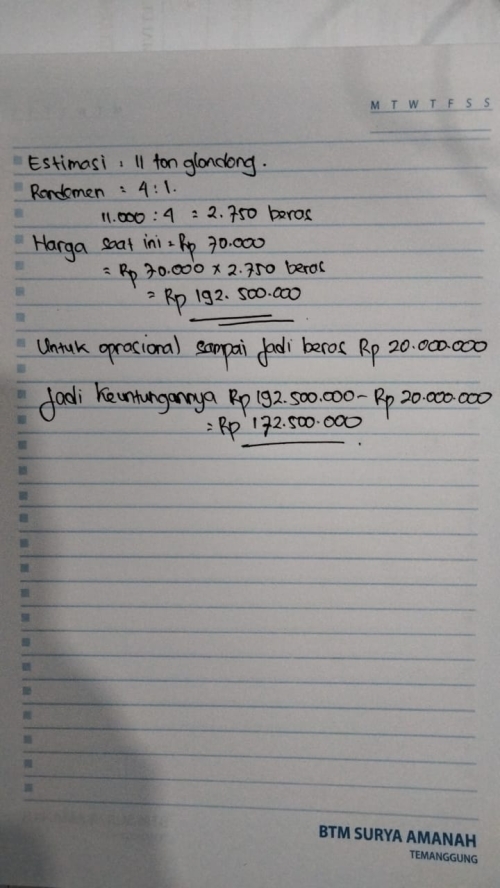 M T W T F S S
Estimasi : 11 ton glondong.
Randemen = 4 : 1.
11.000 : 4 = 2.750 beras
Harga saat ini = Rp 70.000
= Rp 70.000 x 2.750 beras
= Rp 192.500.000
Untuk oprasional sampai jadi beras Rp 20.000.000
Jadi Keuntungannya Rp 192.500.000 - Rp 20.000.000
= Rp 172.500.000
BTM SURYA AMANAH
TEMANGGUNG